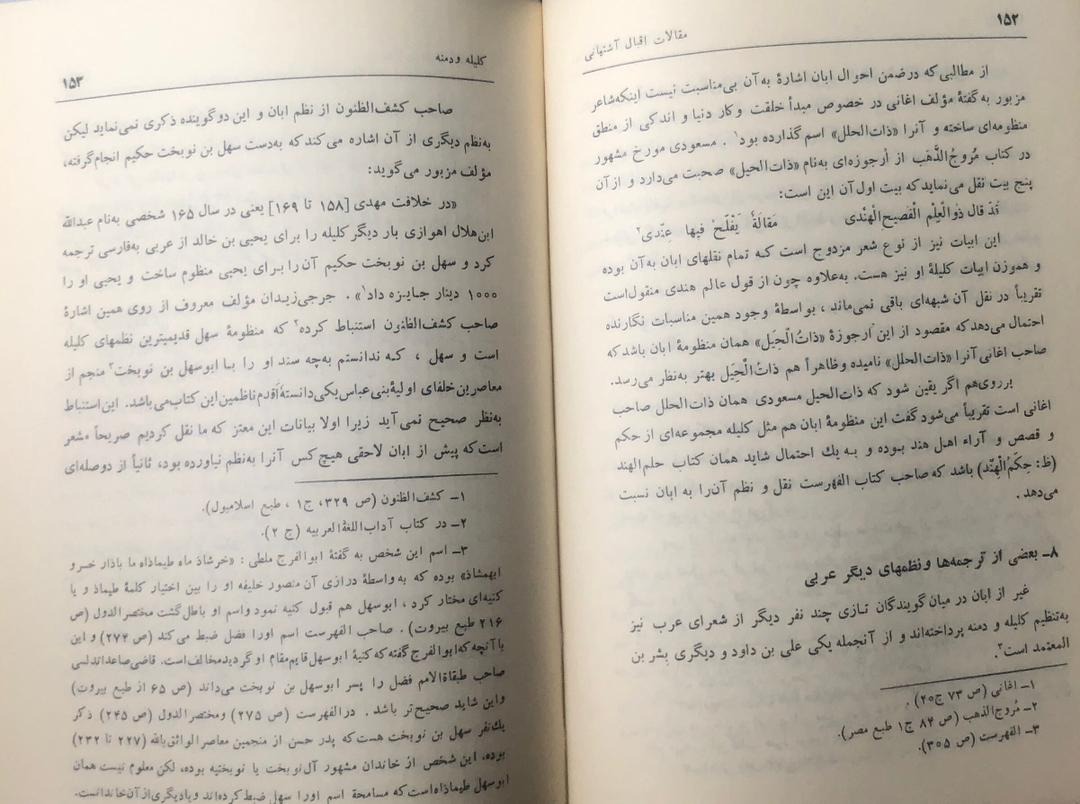 ۱۵۲
مقالات اقبال آشتیانی
از مطالبی که درضمن احوال ابان اشارهٔ به‌آن بی‌مناسبت نیست اینکه‌شاعر
مزبور به‌گفتهٔ مؤلف اغانی در خصوص مبدأ خلقت وکار دنیا و اندکی از منطق
منظومه‌ای ساخته و آنرا «ذات‌الحلل» اسم گذارده بود۱ . مسعودی مورخ مشهور
در کتاب مُروجُ‌الذَّهَب از اُرجوزه‌ای به‌نام «ذات‌الحیل» صحبت می‌دارد و ازآن
پنج بیت نقل می‌نماید‌که بیت اول‌آن این است:
قَدْ قال ذوالعِلْم الْفَصیح‌الْهنْدی مَقالَةً یَفْلَحْ فیها عِنْدی۲
این ابیات نیز از نوع شعر مزدوج است که تمام نقلهای ابان به‌آن بوده
و هموزن ابیات کلیلهٔ او نیز هست. به‌علاوه چون از قول عالم هندی منقول‌است
تقریباً در نقل آن شبهه‌ای باقی نمی‌ماند، بواسطهٔ وجود همین مناسبات نگارنده
احتمال می‌دهدکه مقصود از این اُرجوزهٔ «ذاتُ‌الْحِیَل» همان منظومهٔ ابان باشدکه
صاحب اغانی آنرا «ذات‌الحلل» نامیده وظاهراً هم ذاتُ‌الْحِیَل بهتر به‌نظر می‌رسد.
برروی‌هم اگر یقین شود که ذات‌الحیل مسعودی همان ذات‌الحلل صاحب
اغانی است تقریباً می‌شود گفت این منظومهٔ ابان هم مثل کلیله مجموعه‌ای از حکم
و قصص و آراء اهل هند بوده و به یك احتمال شاید همان کتاب حلم‌الهند
(ظ: حِکَمُ‌الْهِنْد) باشد که صاحب کتاب الفهرست نقل و نظم آن‌را به ابان نسبت
می‌دهد.
۸ـ بعضی از ترجمه‌ها ونظمهای دیگر عربی
غیر از ابان در میان گویندگان تازی چند نفر دیگر از شعرای عرب نیز
به‌تنظیم کلیله و دمنه پرداخته‌اند و از آنجمله یکی علی بن داود و دیگری بِشر بن
المعتمد است۳.
۱ـ اغانی (ص ۷۳ ج۲۰) .
۲ـ مُروج‌الذهب (ص ۸۴ ج۱ طبع مصر).
۳ـ الفهرست (ص ۳۰۵).
کلیله ودمنه
۱۵۳
صاحب کشف‌الظنون از نظم ابان و این دوگوینده ذکری نمی‌نماید لیکن
به‌نظم دیگری از آن اشاره می‌کند که به‌دست سهل بن نوبخت حکیم انجام‌گرفته،
مؤلف مزبور می‌گوید:
«در خلافت مهدی [۱۵۸ تا ۱۶۹] یعنی در سال ۱۶۵ شخصی به‌نام عبدالله
ابن‌هلال اهوازی بار دیگر کلیله را برای یحیی بن خالد از عربی به‌فارسی ترجمه
کرد و سهل بن نوبخت حکیم آن‌را برای یحیی منظوم ساخت و یحیی او را
۱۰۰۰ دینار جایزه داد۱» . جرجی‌زیدان مؤلف معروف از روی همین اشارهٔ
صاحب کشف‌الظنون استنباط کرده۲ که منظومهٔ سهل قدیمیترین نظمهای کلیله
است و سهل ، که ندانستم به‌چه سند او را با ابوسهل بن نوبخت۳ منجم از
معاصرین خلفای اولیهٔ بنی‌عباس‌یکی‌دانسته‌اَقدم‌ناظمین‌این‌کتاب‌می‌باشد. این‌استنباط
به‌نظر صحیح نمی‌آید زیرا اولا بیانات ابن معتز که ما نقل کردیم صریحاً مشعر
است‌که پیش از ابان لاحقی هیچ‌کس آنرا به‌نظم نیاورده بود، ثانیاً از دوصله‌ای
۱ـ کشف‌الظنون (ص ۳۲۹، ج۱ ، طبع اسلامبول).
۲ـ در کتاب آداب‌اللغة‌العربیه (ج ۲).
۳ـ اسم این شخص به گفتهٔ ابوالفرج ملطی : «خرشاذ ماه طیماذاه ما باذار خسرو
ابهمشاذ» بوده که به‌واسطهٔ درازی آن منصور خلیفه او را بین اختیار کلمهٔ طیماذ و یا
کنیه‌ای مختار کرد ، ابوسهل هم قبول کنیه نمود واسم او باطل‌گشت مختصرالدول (ص
۲۱۶ طبع بیروت) . صاحب الفهرست اسم اورا فضل ضبط می‌کند (ص ۲۷۴) و این
با آنچه که‌ابوالفرج گفته‌که کنیهٔ ابوسهل‌قایم‌مقام اوگردیدمخالف‌است. قاضی‌صاعداندلسی
صاحب طبقاة‌الامم فضل را پسر ابوسهل بن نوبخت می‌داند (ص ۶۵ از طبع بیروت)
واین شاید صحیح‌تر باشد . درالفهرست (ص ۲۷۵) ومختصرالدول (ص ۲۴۵) ذکر
یك‌نفر سهل بن نوبخت هست‌که پدر حسن از منجمین معاصرالواثق‌بالله (۲۲۷ تا ۲۳۲)
بوده، این شخص از خاندان مشهور آل‌نوبخت یا نوبختیه بوده، لکن معلوم نیست همان
ابوسهل طیماذاه‌است‌که مسامحة اسم اورا سهل ضبط کرده‌اند ویادیگری‌ازآن‌خاندانست.